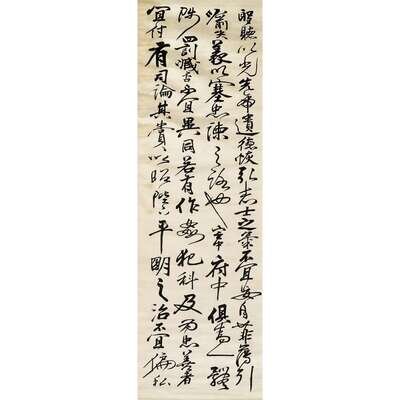 聖聽以光先帝遺德恢弘志士之氣不宜妄自菲薄引
喻失義以塞忠諫之路也宮中府中俱為一體
陟罰臧否不宜異同若有作姦犯科及為忠善者
宜付有司論其賞以昭陛下平明之治不宜偏私